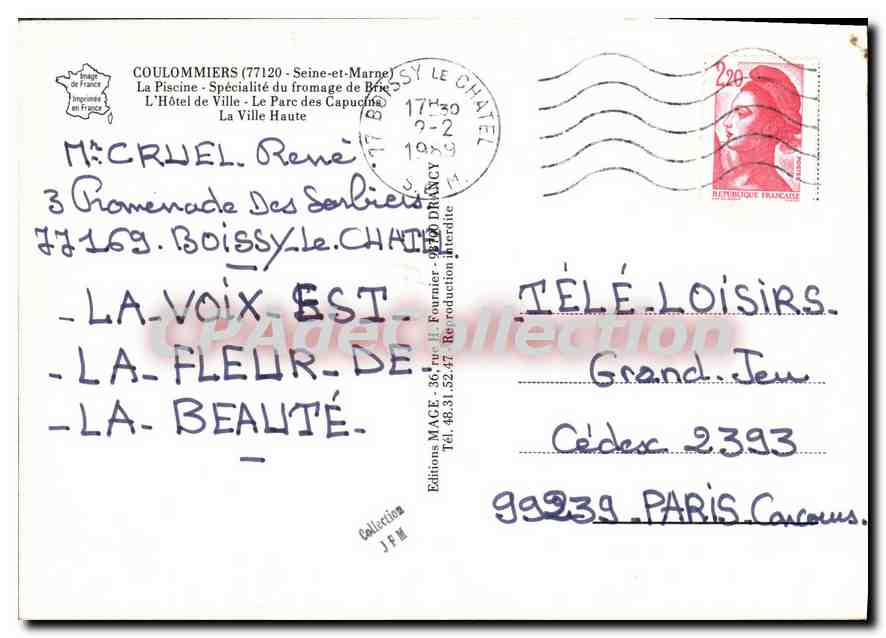 Image
de France
Imprimée
en France
COULOMMIERS (77120 - Seine-et-Marne)
La Piscine - Spécialité du fromage de Brie
L'Hôtel de Ville - Le Parc des Capucins
La Ville Haute
77 BOISSY LE CHATEL
17H30
2-2
1989
S. & M.
2,20
POSTES
REPUBLIQUE FRANÇAISE
Mr. CRUEL. René
3 Promenade Des Sorbiers
77169. BOISSY-Le-CHATEL.
- LA - VOIX - EST -
- LA - FLEUR - DE -
- LA - BEAUTÉ -
Editions MAGE - 36, rue H. Fournier - 93700 DRANCY
Tél. 48.31.52.47 - Reproduction interdite
TÉLÉ-LOISIRS.
Grand-Jeu
Cédex 2393
99239-PARIS-Concours.
Collection
JFM
CPAdeCollection